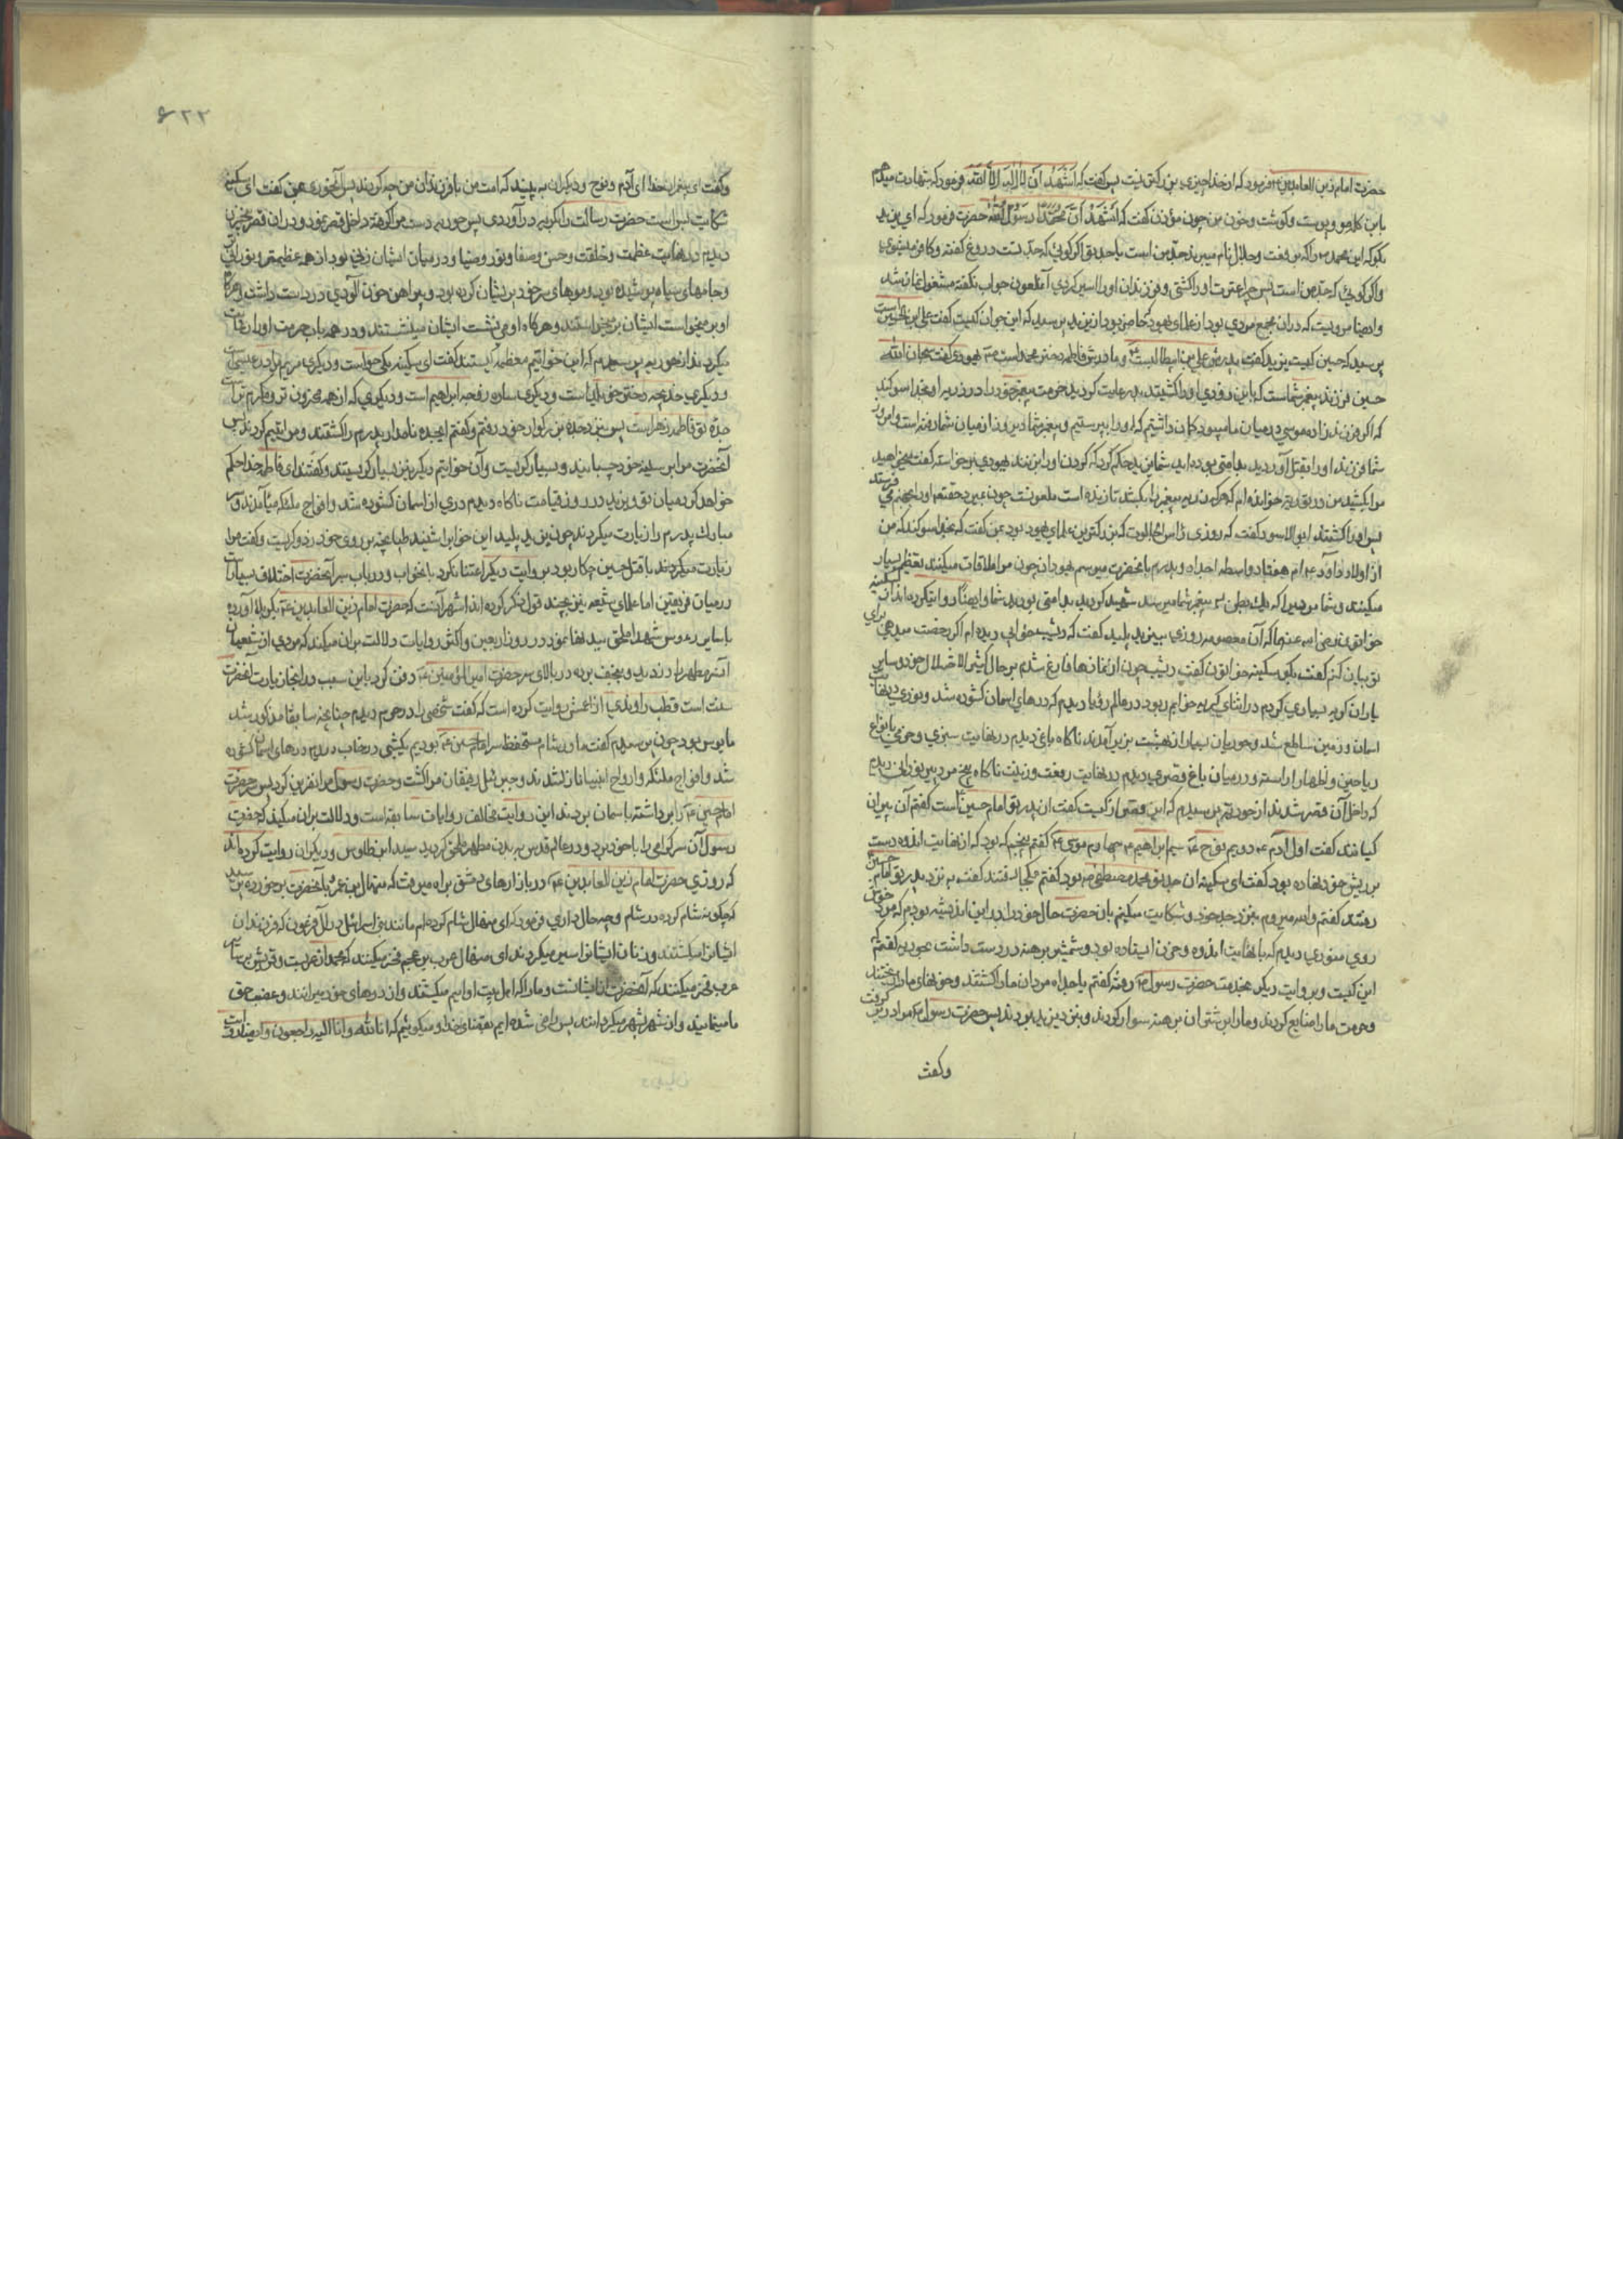 حضرت امام زین العابدین ع فرمود که از خدا چیزی بزرگتر نیست پس گفت که اَشْهَدُ اَنْ لا اِلٰهَ اِلَّا اللّٰه فرمود که شهادت میدهم
باین کلام مو و پوست و گوشت و خون من چون مؤذن گفت که اَشْهَدُ اَنَّ مُحَمَّدًا رَسُولُ اللّٰه حضرت فرمود که ای یزید
بگو که این محمد ص که نامش میبرند جد من است یا جد تو اگر گوئی که جد تست دروغ گفته و کافر میشوی
و اگر گوئی که جد من است پس چرا عترت او را کشتی و فرزندان او را اسیر کردی آن ملعون جواب نگفته مشغول نماز شد
و ایضا مرویست که در آن مجمع مردی بود از علمای یهود حاضر بود از یزید پرسید که این جوان کیست گفت علی ابن الحسین است
پرسید که حسین کیست یزید گفت پدرش علی بن ابیطالبست ع و مادرش فاطمه دختر محمد است ص یهودی گفت سبحان الله
حسین فرزند پیغمبر شماست که باین زودی او را کشتید بد رعایت کردید حرمت پیغمبر خود را در ذریه او بخدا سوگند
که اگر فرزندزاده موسی در میان ما میبود گمان داشتیم که او را بپرستیم و پیغمبر شما دیروز از میان شما رفته است و امروز
شما فرزند او را بقتل آوردید بد امتی بوده‌اید شما یزید حکم کرد که گردن او را بزنند یهودی برخواسته گفت میخواهید
مرا بکشید من در توریه خوانده‌ام که هر که ذریه پیغمبر را بکشد تا زنده است ملعونست چون بمیرد حقتعالی او را بجهنم میفرستد
پس او را کشتند ابو الاسود گفت که روزی راس الجالوت که بزرگترین علمای یهود بود بمن گفت که بخدا سوگند که من
از اولاد داود ع ام هفتاد واسطه اجداد و پدرم بآنحضرت میرسم یهودان چون مرا ملاقات میکنند تعظیم بسیار
میکنند و شما مردیرا که بیک بطن به پیغمبر شما میرسد شهید کردید بد امتی بودید شما و ایضا روایتکرده‌اند از سکینه
خواتون رضی الله عنها که آن معصومه روزی بیزید پلید گفت که دیشب خوابی دیده‌ام اگر رخصت میدهی برای
تو بیان کنم گفت بگو سکینه خواتون گفت دیشب چون از نمازها فارغ شدم بر حال کثیر الاختلال خود و سایر
یاران گریه بسیاری کردم در اثنای گریه خوابم ربود در عالم رؤیا دیدم که درهای آسمان گشوده شد و نوری در نهایت
آسمان و زمین ساطع شد و حوریان بسیار از بهشت بزیر آمدند ناگاه باغی دیدم در نهایت سبزی و خرمی بانواع
ریاحین و ازهار آراسته و در میان باغ قصری دیدم در نهایت رفعت و زینت ناگاه پنج مرد پیر نورانی دیدم
که داخل آن قصر شدند از حوریه پرسیدم که این قصر از کیست گفت از پدر تو امام حسین است گفتم آن پیران
کیانند گفت اول آدم ع دویم نوح ع سیم ابراهیم ع چهارم موسی ع گفتم پنجم که بود که از نهایت اندوه دست
بر ریش خود نهاده بود گفت ای سکینه آن جد تو محمد مصطفی ص بود گفتم کجا رفتند گفت به نزد پدر تو امام حسین
رفتند گفتم والله میروم بنزد جد خود و شکایت میکنم بآن حضرت حال خود را در این اندیشه بودم که مرد خوش
روی منوری دیدم که با نهایت اندوه و حزن ایستاده بود و شمشیر برهنه در دست داشت بحوریه گفتم که
این کیست و بروایت دیگر بخدمت حضرت رسول ص رفته گفتم یا جداه مردان ما را کشتند و خونهای ما را ریختند
و حرمت ما را ضایع کردند و ما را بر شتران برهنه سوار کردند و بنزد یزید بردند پس حضرت رسول ص مرا در بر گرفت
وگفت
۶۲۲
و گفت ای پیغمبران خدا ای آدم و نوح و دیگران به بینید که امت من با فرزندان من چه کردند پس آنحوری بمن گفت ای سکینه
شکایت بس است حضرت رسالت را بگریه درآوردی پس حوریه دست مرا گرفته داخل قصر نمود در آن قصر پنج زن
دیدم در نهایت عظمت و خلقت و حسن و صفا و نور و ضیا و در میان ایشان زنی بود از همه عظیمتر و نورانی‌تر
و جامهای سیاه پوشیده بود و موهای سر خود پریشان کرده بود و پیراهن خون آلودی در دست داشت و هرگاه
او برمیخواست ایشان برمیخواستند و هرگاه او می‌نشست ایشان مینشستند و در همه باب حرمت او را رعایت
میکردند از حوریه پرسیدم که این خواتین معظمه کیستند گفت ای سکینه یکی حواست و دیگری مریم مادر عیسی است
و دیگری خدیجه دختر خویلد است و دیگری ساره زوجه ابراهیم است و دیگری که از همه محزون‌تر و مکرم‌تر است
جده تو فاطمه زهراست پس بنزد جده بزرگوار خود رفتم و گفتم ای جده نامدار پدرم را کشتند و مرا یتیم کردند پس
آنحضرت مرا بر سینه خود چسبانید و بسیار گریست و آن خواتیم دیگر نیز بسیار گریستند و گفتند ای فاطمه خدا حکم
خواهد کرد میان تو و یزید در روز قیامت ناگاه دیدم دری از آسمان گشوده شد و افواج ملئکه می‌آمدند و سر
مبارک پدرم را زیارت میکردند چون یزید پلید این خوابرا شنید طپانچه بر روی خود زد و گریست و گفت مرا
زیارت میکردند با قتل حسین چکار بود بروایت دیگر اعتنا نکرد باینخواب و در باب سر آنحضرت اختلاف بسیار است
در میان فریقین اما علمای شیعه نیز چند قول ذکر کرده‌اند اشهر آنست که حضرت امام زین العابدین ع بکربلا آورده
با سایر رؤس شهدا ملحق ببدنها نمود در روز اربعین و اکثر روایات دلالت بر آن میکند که مردی از شیعیان
آن سر مطهر را دزدید و بنجف برده در بالای سر حضرت امیر المؤمنین ع دفن کرد باین سبب در آنجا زیارت آنحضرت
سنت است قطب راوندی از اعمش روایت کرده است که گفت شخصی را در حرم دیدم چنانچه سابقا مذکور شد
مایوس بود چون پرسیدم گفت ما در شام مستحفظ سر امام حسین ع بودیم یکشبی در خواب دیدم درهای آسمان گشوده
شد و افواج ملئکه و ارواح انبیا نازل شدند و جبرئیل رفیقان مرا کشت و حضرت رسول مرا نفرین کرد پس سر حضرت
امام حسین ع را برداشته باسمان بردند این روایت مخالف روایات سابقه است و دلالت بر آن میکند که حضرت
رسول آن سر گرامی را با خود برد و در عالم قدس به بدن مطهر ملحق گردید سید ابن طاوس و دیگران روایت کرده‌اند
که روزی حضرت امام زین العابدین ع در بازارهای دمشق براه میرفت که منهال بن عمرو بآنحضرت برخورده پرسید
که چگونه شام کرده در شام و چه حال داری فرمود که ای منهال شام کرده‌ام مانند بنی اسرائیل در آل فرعون که فرزندان
ایشانرا میکشتند و زنان ایشانرا اسیر میکردند ای منهال عرب بر عجم فخر میکنند که محمد از عربست و قریش بر سایر
عرب فخر میکنند که آنحضرت از ایشانست و ما را که اهل بیت اوایم میکشند و از درهای خود میرانند و غصب حق
ما مینمایند و از شهر بشهر میگردانند پس راضی شده‌ایم بقضای خدا و میگوئیم که انا لله و انا الیه راجعون و ایضا روایت